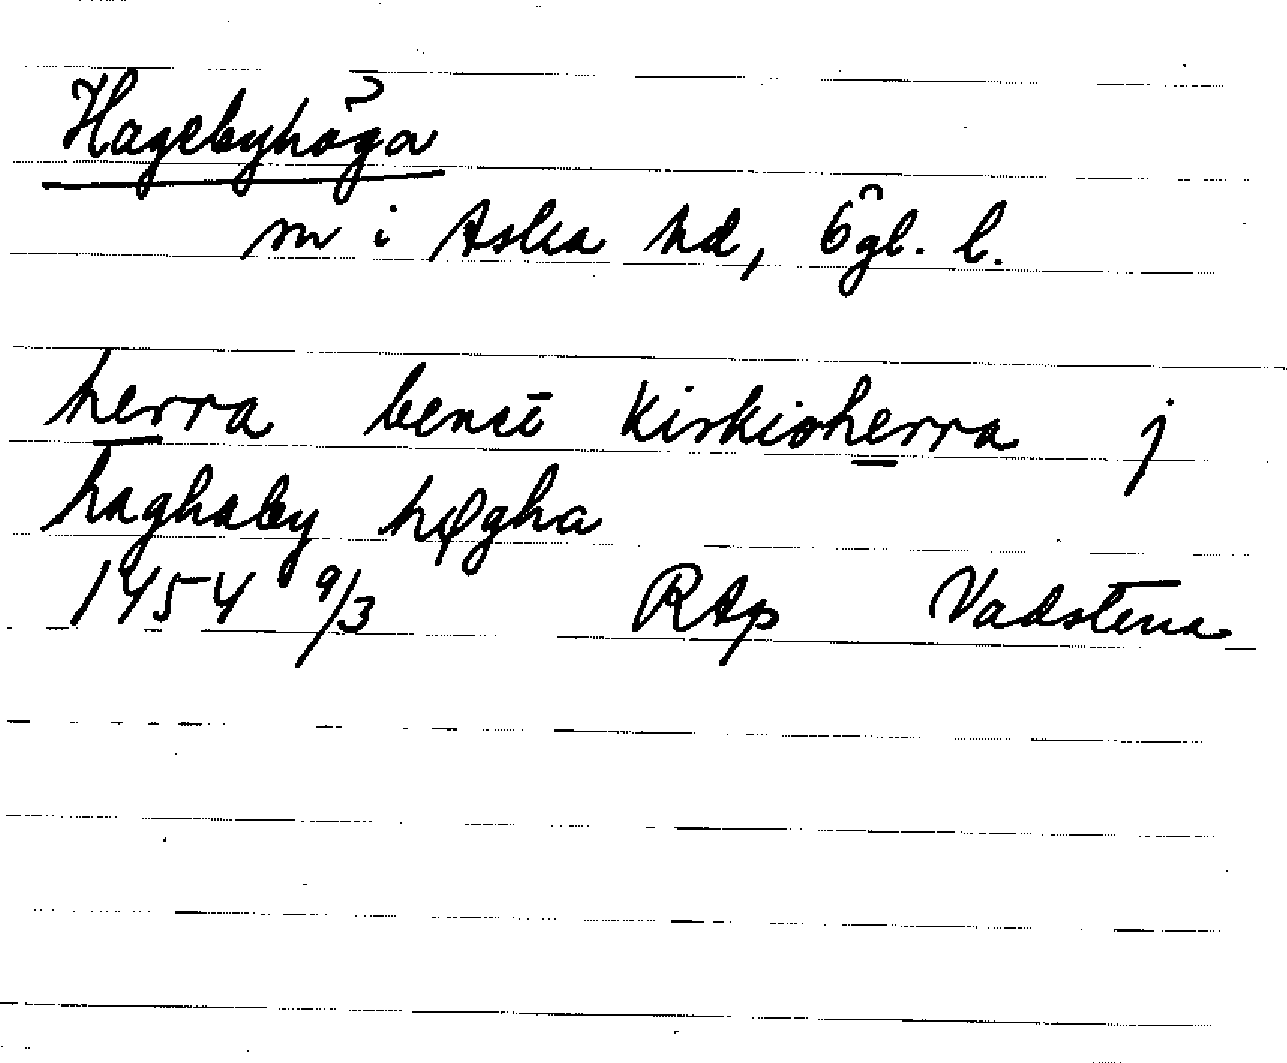 Hagebyhöga
sn i Aska hd, Ögl. l.
herra benct kirkioherra j
haghaby høgha
1454 9/3 RAp Vadstena